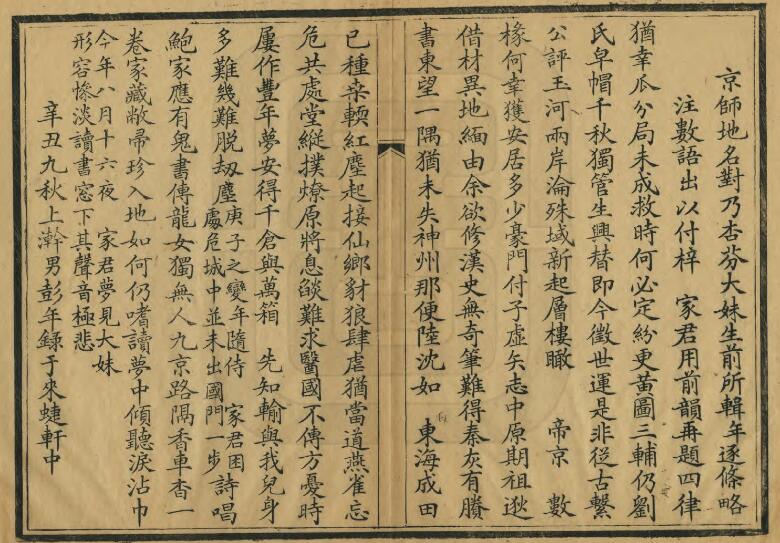 京師地名對乃杏芬大妹生前所輯年逐條略
注數語出以付梓　家君用前韻再題四律
猶幸瓜分局未成救時何必定紛更黃圖三輔仍劉
氏皁帽千秋獨管生興替即今徵世運是非從古繫
公評玉河兩岸淪殊域新起層樓瞰　帝京　數
椽何幸獲安居多少豪門付子虛矢志中原期祖逖
借材異地緬由余欲修漢史無奇筆難得秦灰有賸
書東望一隅猶未失神州那便陸沈如　東海成田
已種桑輭紅塵起接仙鄉豺狼肆虐猶當道燕雀忘
危共處堂縱撲燎原將息燄難求醫國不傳方憂時
屢作豐年夢安得千倉與萬箱　先知輸與我兒身
多難幾難脫劫塵庚子之變年隨侍　家君困處危城中並未出國門一步詩唱
鮑家應有鬼書傳龍女獨無人九京路隔香車杳一
卷家藏敝帚珍入地如何仍嗜讀夢中傾聽淚沾巾
今年八月十六夜　家君夢見大妹
形容慘淡讀書窓下其聲音極悲
辛丑九秋上澣男彭年錄于來蜨軒中